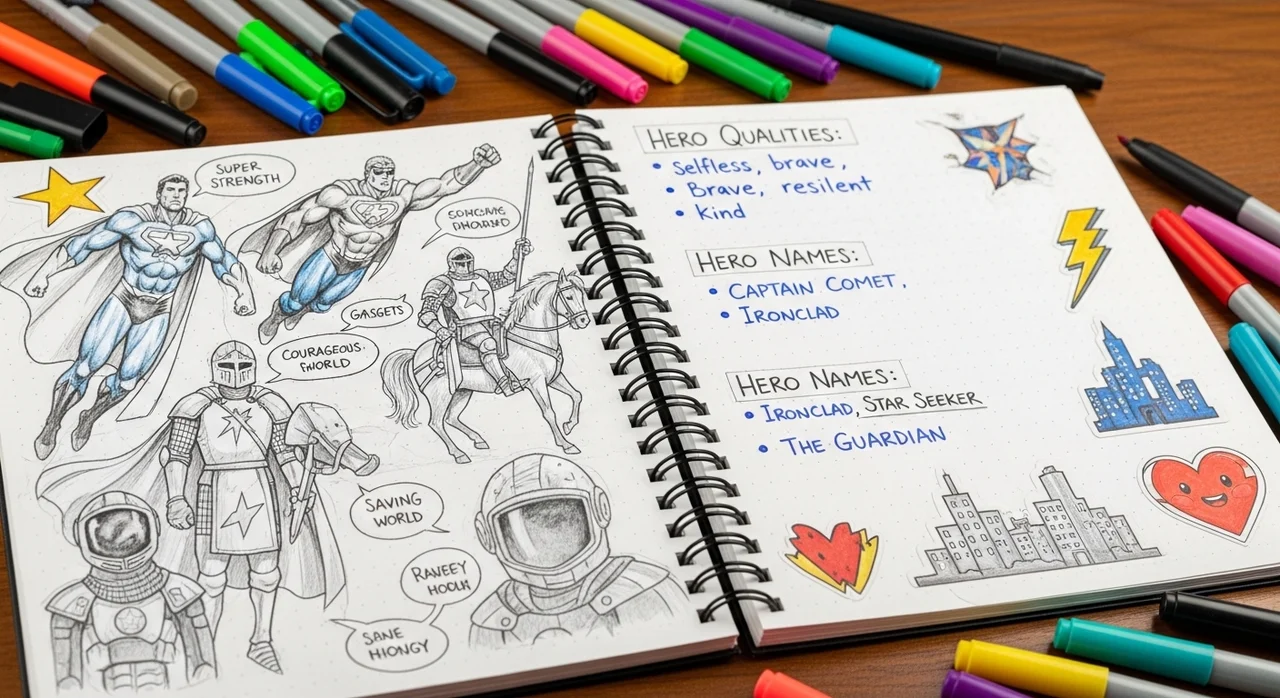 SUPER
STRENGTH
GASGETS
COURAGEOUS.
SAVING
WORLD
RANEEY
SANE
HIONGY
HERO QUALITIES:
• Selfless, brave,
• Brave, resilent
• Kind
HERO NAMES:
• CAPTAIN COMET,
• IRONCLAD
HERO NAMES:
• IRONCLAD, STAR SEEKER
• THE GUARDIAN